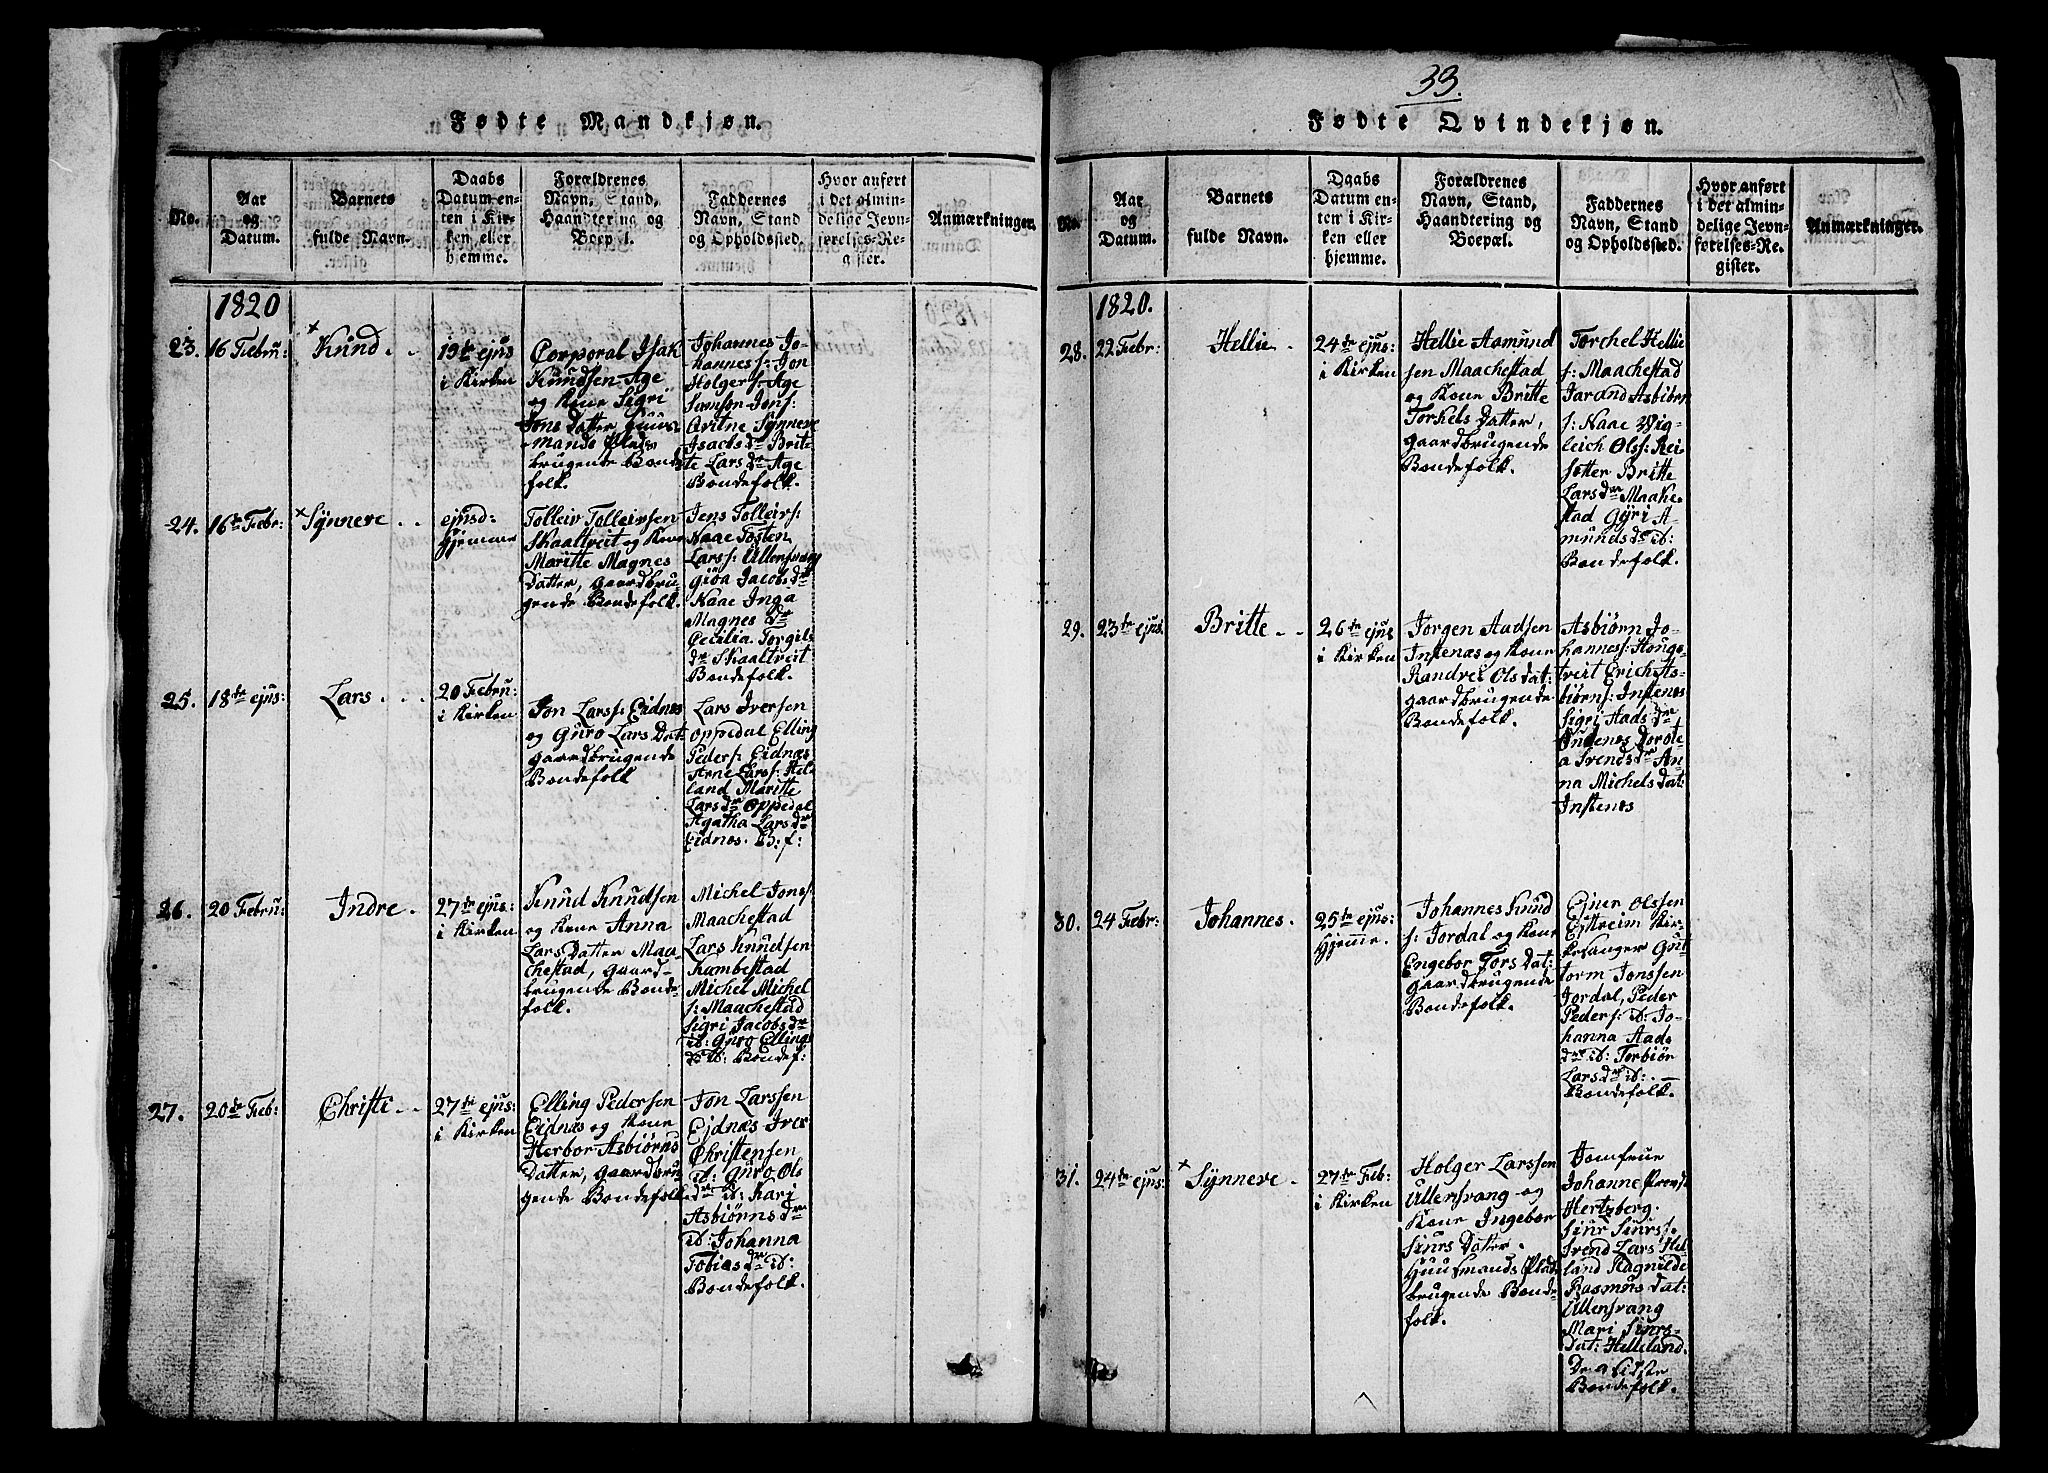 33.
Fødte Mandkjøn.
No.
Aar
og
Datum.
Barnets
fulde Navn.
Daabs
Datum en-
ten i Kir-
ken eller
hjemme.
Forældrenes
Navn, Stand,
Haandtering og
Boepæl.
Faddernes
Navn, Stand
og Opholdssted.
Hvor anført
i det almin-
delige Jevn-
førelses-Re-
gister.
Anmærkninger.
1820
23.
16 Febru:
Knud
19t ejus
i Kirken
Corporal Isak
Knudsen Age
og Kone Sigri
Jons Datter Huus-
mands Plads
brugende Bonde
folk.
Johannes Jo-
hannes s: Jon
Holger s: Age
Samson Jons:
Qvitne Synneve
Isachs dr Brit-
te Lars dr Age
Bondefolk.
24.
16de Febr:
Synneve
ejusd:
hjemme
Tolleiv Tolleivsen
Skaaltveit og Kone
Maritte Magnes
Datter, gaardbru-
gende Bondefolk.
Jens Tolleivs:
Naae Tosten
Larss: Ullensvang
Giøa Jacobs dr
Naae Inga
Magnes dr
Cecilia Torgils
dr Skaaltveit
Bondefolk.
25.
18de ejus:
Lars
20 Febru:
i Kirken
Jon Larss: Eidnes
og Guro Lars Dat:
gaardbrugende
Bondefolk
Lars Iversen
Oppedal Elling
Peders: Eidnæs
Arne Larss: Hel-
land Maritte
Lars dr Oppedal
Agatha Lars dr
Eidnæs. B: f:
26.
20 Febru:
Indre
27de ejus:
i Kirken
Knud Knudsen
og Kone Anna
Lars Datter Maa-
chestad, gaard-
brugende Bonde-
folk.
Michel Jons s:
Maachestad
Lars Knudsen
Kambestad
Michel Michel
s: Maachestad
Sigri Jacobs dr
ib: Guro Ellings
dr ib: Bondef:
27.
20de Feb:
Christe
27de ejus:
i Kirken
Elling Pedersen
Eidnæs og Kone
Herbor Asbiørns
Datter, gaardbru-
gende Bondefolk
Jon Larssen
Ejdnæs Iver
Christensen
ib: Guro Ols
dr ib: Kari
Asbiørns dr
ib: Johanna
Tobias dr ib:
Bondefolk.
Fødte Qvindekjøn.
No.
Aar
og
Datum.
Barnets
fulde Navn.
Daabs
Datum en-
ten i Kir-
ken eller
hjemme.
Forældrenes
Navn, Stand,
Haandtering og
Boepæl.
Faddernes
Navn, Stand
og Opholdssted.
Hvor anført
i det almin-
delige Jevn-
førelses-Re-
gister.
Anmærkninger.
1820.
28.
22 Febr:
Hellie
24de ejus:
i Kirken
Hellie Aamund
sen Maachestad
og Kone Britte
Torkels Datter,
gaardbrugende
Bondefolk.
Torchel Hellie
s: Maachestad
Jarand Asbiørn
s: Naae Vig-
leich Olss: Rei-
sotter Britte
Lars dr Maake-
stad Gyri A-
munds dr ib:
Bondefolk.
29.
23de ejus.
Britte
26de ejus
i Kirken
Jorgen Aadsen
Instenæs og Kone
Randvei Ols dat:
gaardbrugende
Bondefolk.
Asbiørn Jo-
hanness: Houge-
tveit Erich As-
biørns: Instenæs
Sigri Aads dr
Indenæs Dorote-
a Svends dr An-
na Michels dat:
Instenæs
30.
24 Febr:
Johannes
25de ejus:
hjemme.
Johannes Knud
s: Jordal og Kone
Engebor Tors Dat:
gaardbrugende
Bondefolk.
Ejner Olssen
Ejttreim Kir-
kesanger Gut-
torm Jonssen
Jordal, Peder
Peders: ib: Jo-
hanna Aads
dr ib: Torbiør
Lars dr ib:
Bondefolk.
31.
24de ejus:
Synneve
27de Feb:
i Kirken
Holger Larssen
Ullensvang og
Kone Ingebor
Siurs Datter.
Huusmands Plads
brugende Bonde-
folk.
Jomfrue
Johanne Provst
Hertzberg.
Siur Siurss:
Svend Lars Hel-
land Ragnilde
Rasmus Dat:
Ullensvang
Mari Siurs-
Dat: Helleland.
De 4 sidste
Bondefolk.